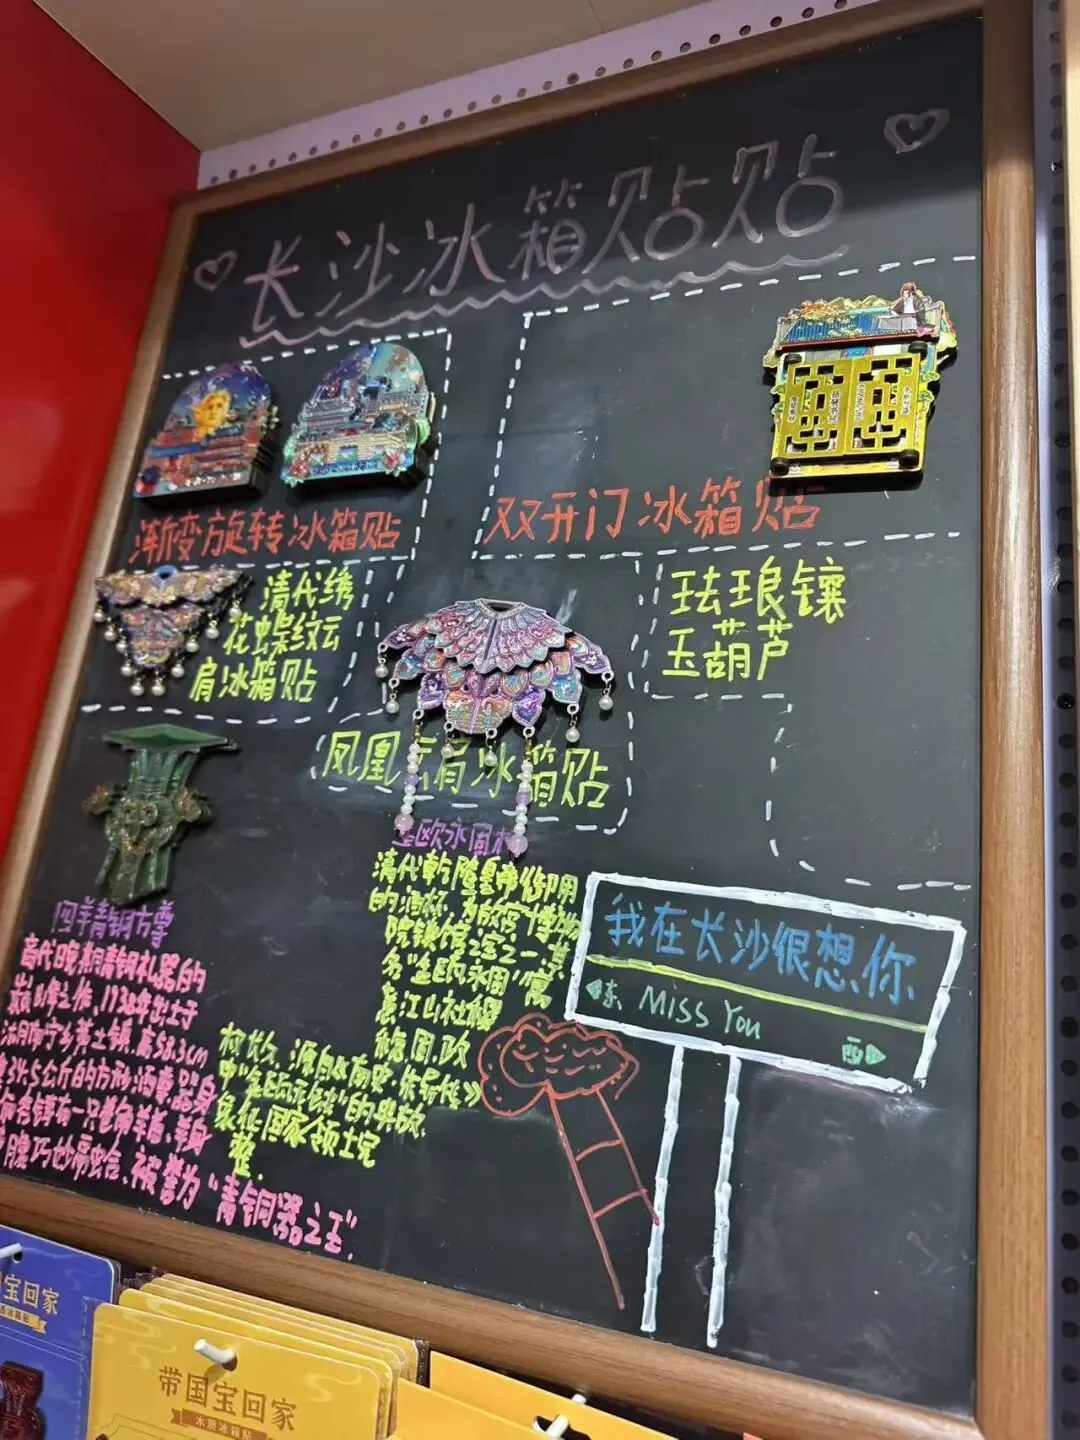 长沙冰箱贴贴
渐变旋转冰箱贴
双开门冰箱贴
清代绣
花蝶纹云
肩冰箱贴
珐琅镶
玉葫芦
凤凰云肩冰箱贴
四羊青铜方尊
商代晚期青铜礼器的
巅峰之作,1938年出土于
高58.3cm
34.5公斤的方形酒尊,器身
有一只卷角羊首,羊身
被誉为“青铜器之王”.
欧永固
清代乾隆皇帝御用
的酒杯,为故宫博物
院镇馆之宝之一,其
名“金瓯永固”寓
意江山社稷
稳固,政
权长久,源自《南史·朱异传》
中“金瓯无缺”的典故,
象征国家领土完
整.
我在长沙很想你
东 MISS YOU
西
宝回家
带国宝回家
木质冰箱贴